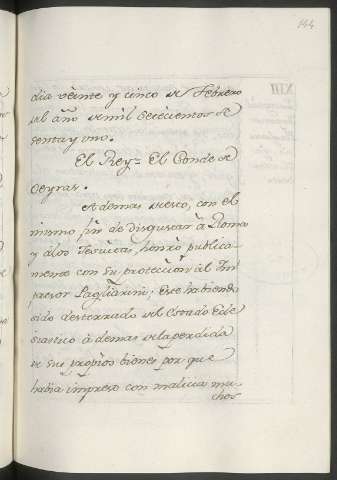 144
dia veinte y cinco de Febrero
del año de mil Setecientos se
senta y uno.
El Rey = El Conde de
Oeyras.
Ademas de esto, con el
mismo fin de disgustar à Roma
y à los Jesuitas, honrò publica-
mente con su proteccion àl Im
presor Pagliarini; Este habiendo
sido desterrado del Estado Ecle
siastico à demas de la perdida
de sus propios bienes por que
habia impreso con malicia mu-
chos